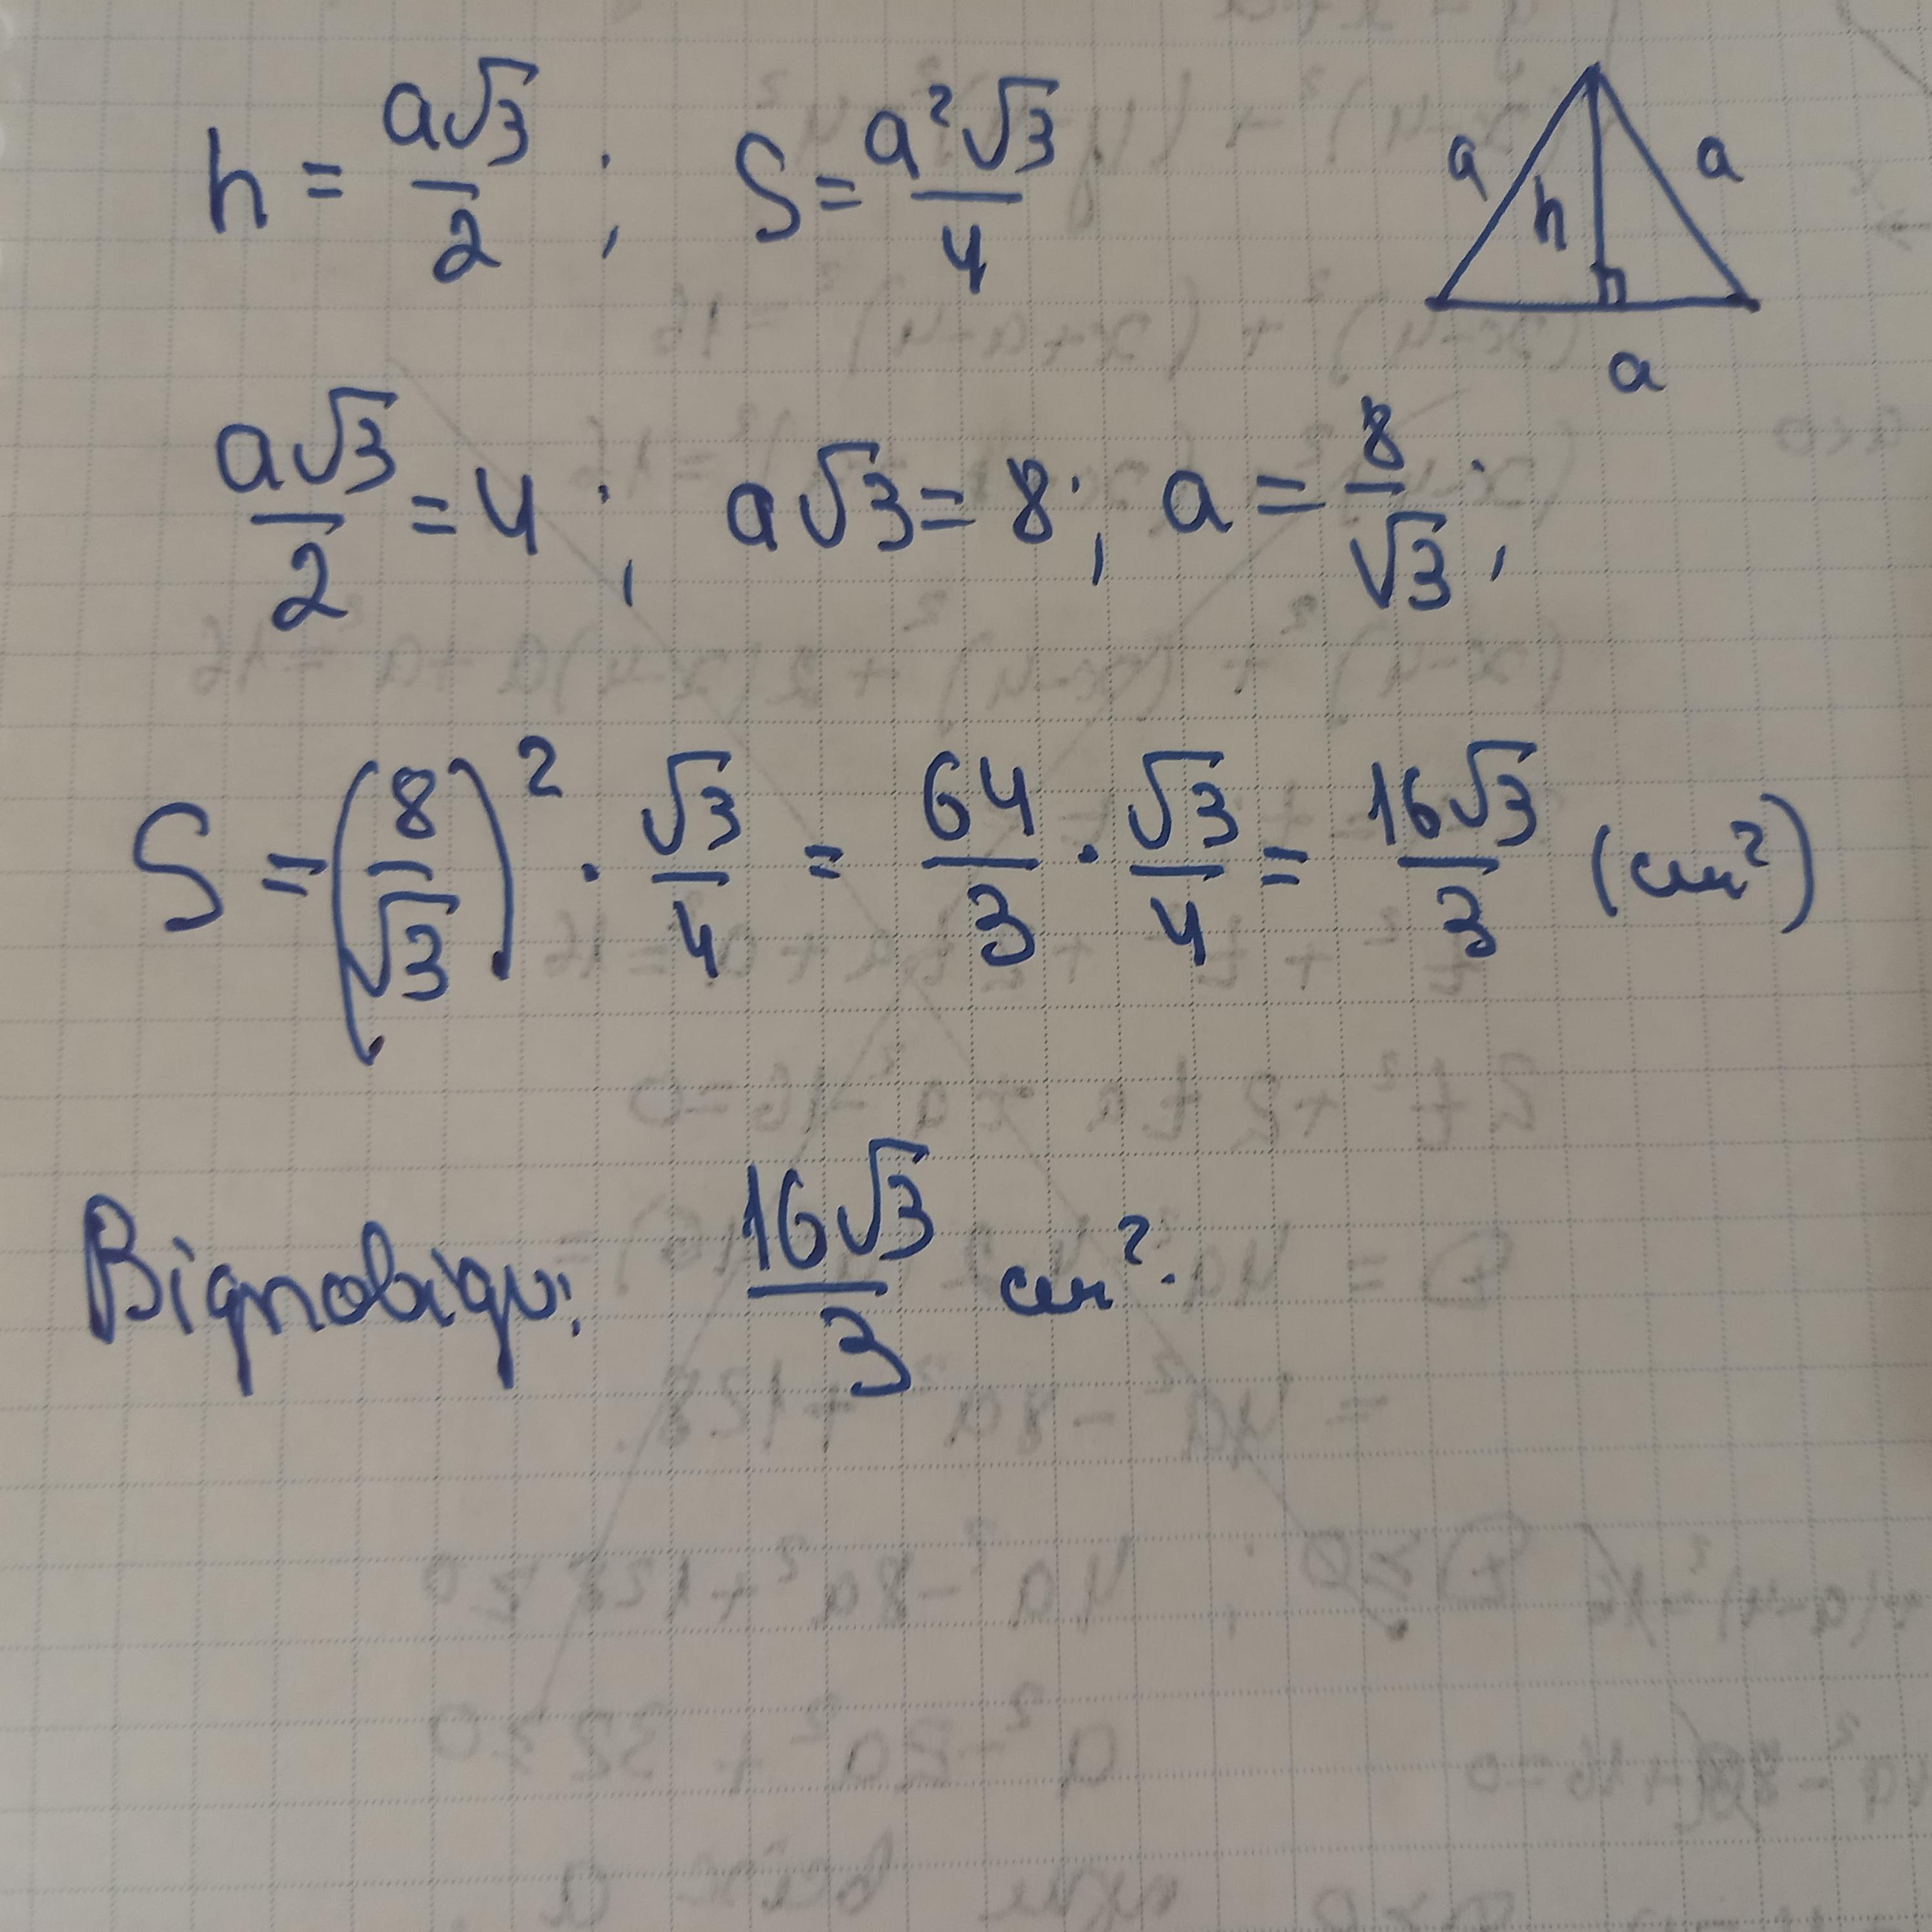 h = a√3/2 ; S = a²√3/4
a a h a
a√3/2 = 4 ; a√3 = 8 ; a = 8/√3 ;
S = (8/√3)² · √3/4 = 64/3 · √3/4 = 16√3/3 (см²)
Відповідь: 16√3/3 см².